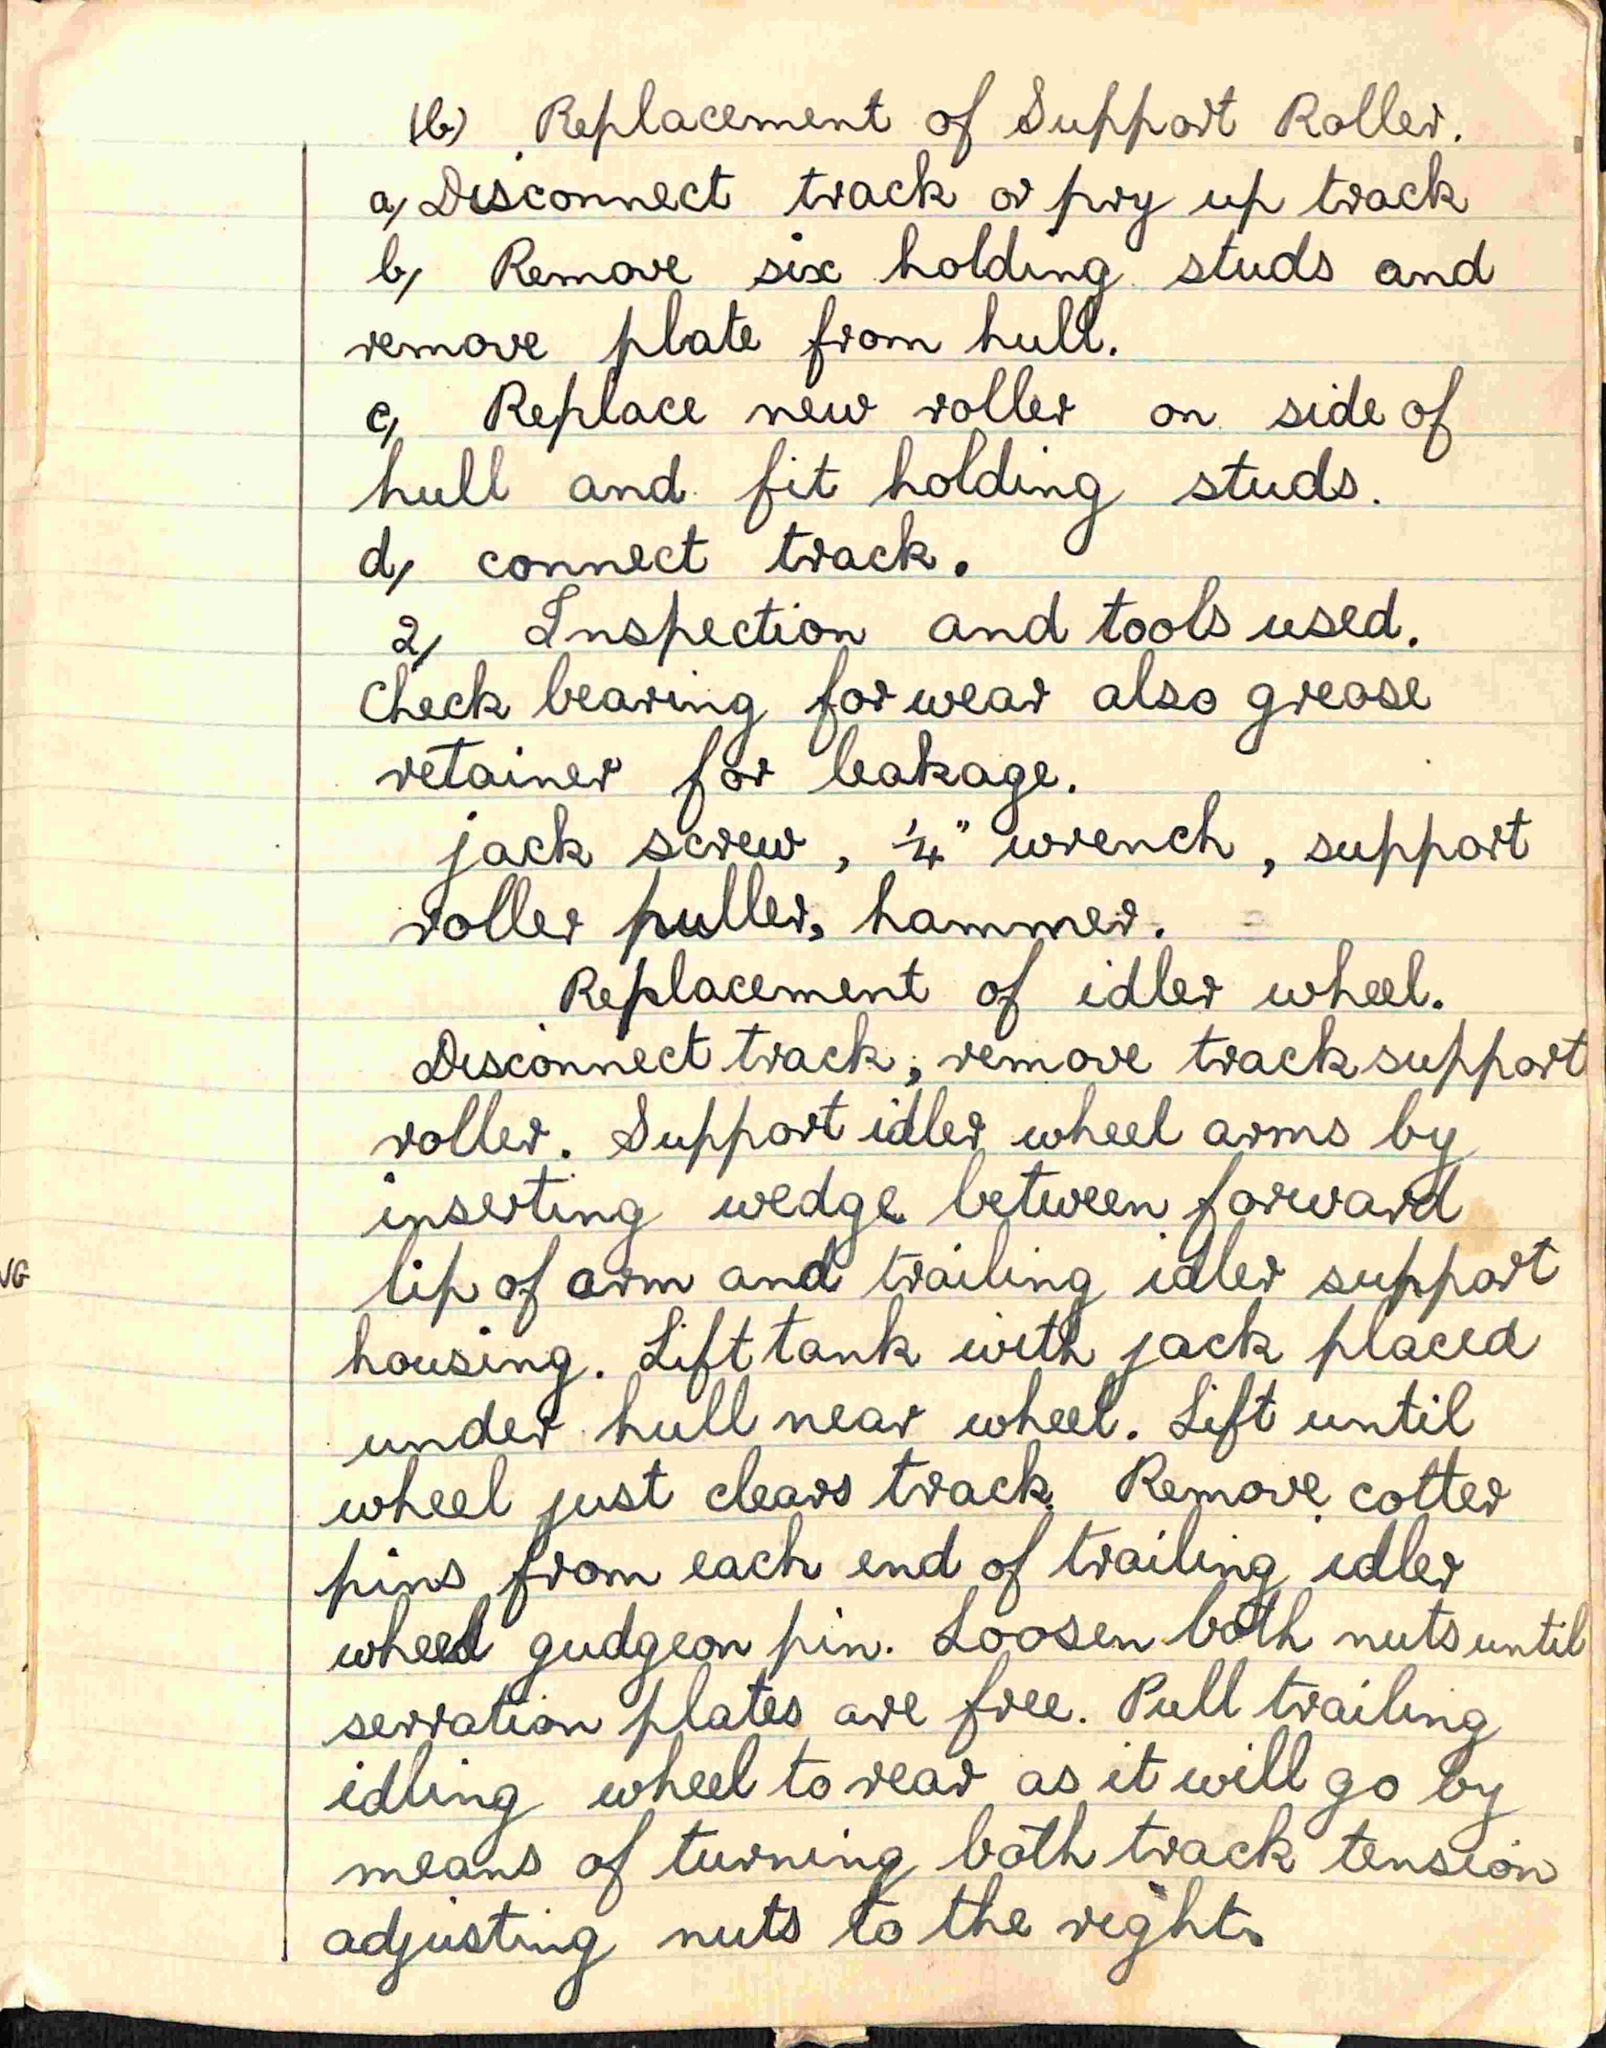 (b) Replacement of Support Roller.
a, Disconnect track or pry up track
b, Remove six holding studs and
remove plate from hull.
c, Replace new roller on side of
hull and fit holding studs.
d, connect track.
2, Inspection and tools used.
Check bearing for wear also grease
retainer for leakage.
jack screw, 1/4" wrench, support
roller puller, hammer.
Replacement of idler wheel.
Disconnect track, remove track support
roller. Support idler wheel arms by
inserting wedge between forward
lip of arm and trailing idler support
housing. Lift tank with jack placed
under hull near wheel. Lift until
wheel just clears track. Remove cotter
pins from each end of trailing idler
wheel gudgeon pin. Loosen both nuts until
serration plates are free. Pull trailing
idling wheel to rear as it will go by
means of turning both track tension
adjusting nuts to the right.